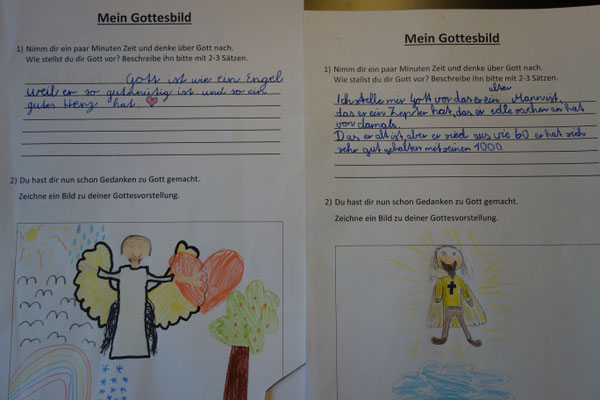 Mein Gottesbild
1) Nimm dir ein paar Minuten Zeit und denke über Gott nach.
Wie stellst du dir Gott vor? Beschreibe ihn bitte mit 2-3 Sätzen.
Gott ist wie ein Engel
weil er so gutmütig ist und so ein
gutes Herz hat.
2) Du hast dir nun schon Gedanken zu Gott gemacht.
Zeichne ein Bild zu deiner Gottesvorstellung.
Mein Gottesbild
1) Nimm dir ein paar Minuten Zeit und denke über Gott nach.
Wie stellst du dir Gott vor? Beschreibe ihn bitte mit 2-3 Sätzen.
alter
Ich stelle mir Gott vor das er ein Mann ist,
das er ein Zepter hat, das er edle sachen an hat
von damals.
Das er alt ist, aber er sied aus wie 60 er hat sich
sehr gut gehalten mit seinen 1000.
2) Du hast dir nun schon Gedanken zu Gott gemacht.
Zeichne ein Bild zu deiner Gottesvorstellung.